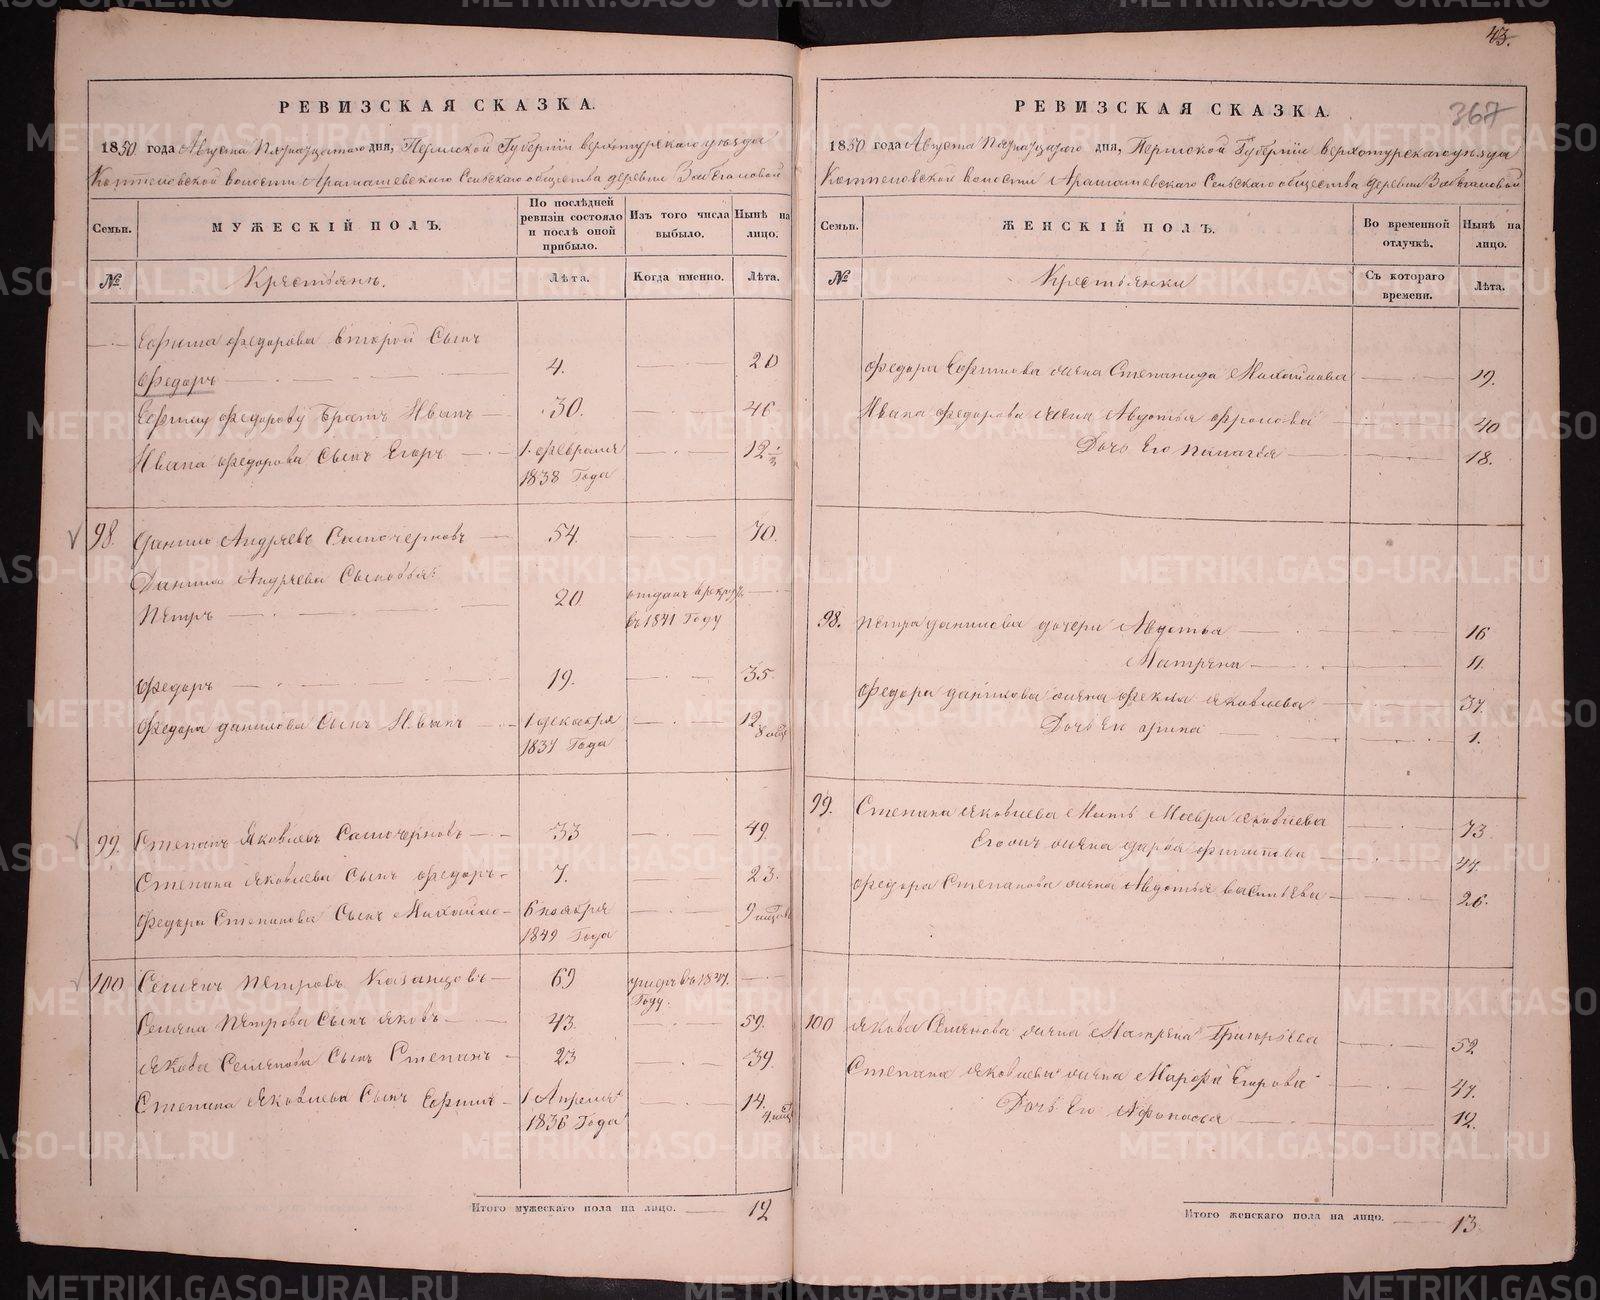 43.
367
РЕВИЗСКАЯ СКАЗКА.
1850 года Августа Пятнадцатого дня, Пермской Губерніи Верхотурскаго уѣзда
Коптеловской волости Арамашевскаго Сельскаго общества деревни
Семьи.
МУЖЕСКІЙ ПОЛЪ.
По послѣдней ревизіи состояло и послѣ оной прибыло.
Изъ того числа выбыло.
Нынѣ на лицо.
№
Крестьянъ.
Лѣта.
Когда именно.
Лѣта.
Ефима Федорова второй Сынъ
Федоръ 4. 20
Ефиму Федорову братъ Иванъ 30. 46
Ивана Федорова Сынъ Егоръ 1. февраля 1838 Года 12
98. Данило Андреевъ Самочерновъ 54. 70.
Данила Андреева Сыновья:
Петръ 20 отданъ въ рекруты въ 1841 Году
Федоръ 19. 35.
Федора Данилова Сынъ Иванъ 1 декабря 1837 Года 12
99. Степанъ Яковлевъ Самочерновъ 33 49.
Степана Яковлева Сынъ Федоръ 7. 23.
Федора Степанова Сынъ Михайло 6 ноября 1849 Года 9
100 Семенъ Петровъ Казанцовъ 69 умеръ въ Году.
Семена Петрова Сынъ Яковъ 43. 59.
Якова Семенова Сынъ Степанъ 23 39.
Степана Яковлева Сынъ Ефимъ 1 Апреля 1836 Года 14.
Итого мужескаго пола на лицо. 12
РЕВИЗСКАЯ СКАЗКА.
1850 года Августа Пятнадцатаго дня, Пермской Губерніи Верхотурскаго уѣзда
Коптеловской волости Арамашевскаго Сельскаго общества деревни
Семьи.
ЖЕНСКІЙ ПОЛЪ.
Во временной отлучкѣ.
Нынѣ на лицо.
№
Крестьянки
Съ котораго времени.
Лѣта.
Федора Ефимова жена Степанида Михайлова 19.
Ивана Федорова жена Авдотья Фролова 40
Дочь Его 18.
98. Петра Данилова дочери Авдотья 16
Матрена 11.
Федора Данилова жена Фекла Яковлева 37.
Дочь Его Ирина 1.
99. Степана Яковлева Мать Мавра Яковлева 73.
Его жена Дарья Филипова 47.
Федора Степанова жена Авдотья Васильева 26.
100 Якова Семенова жена Матрена Григорьева 52.
Степана Яковлева жена Марфа Егорова 47.
Дочь Его Афонасья 12.
Итого женскаго пола на лицо. 13.
METRIKI.GASO-URAL.RU